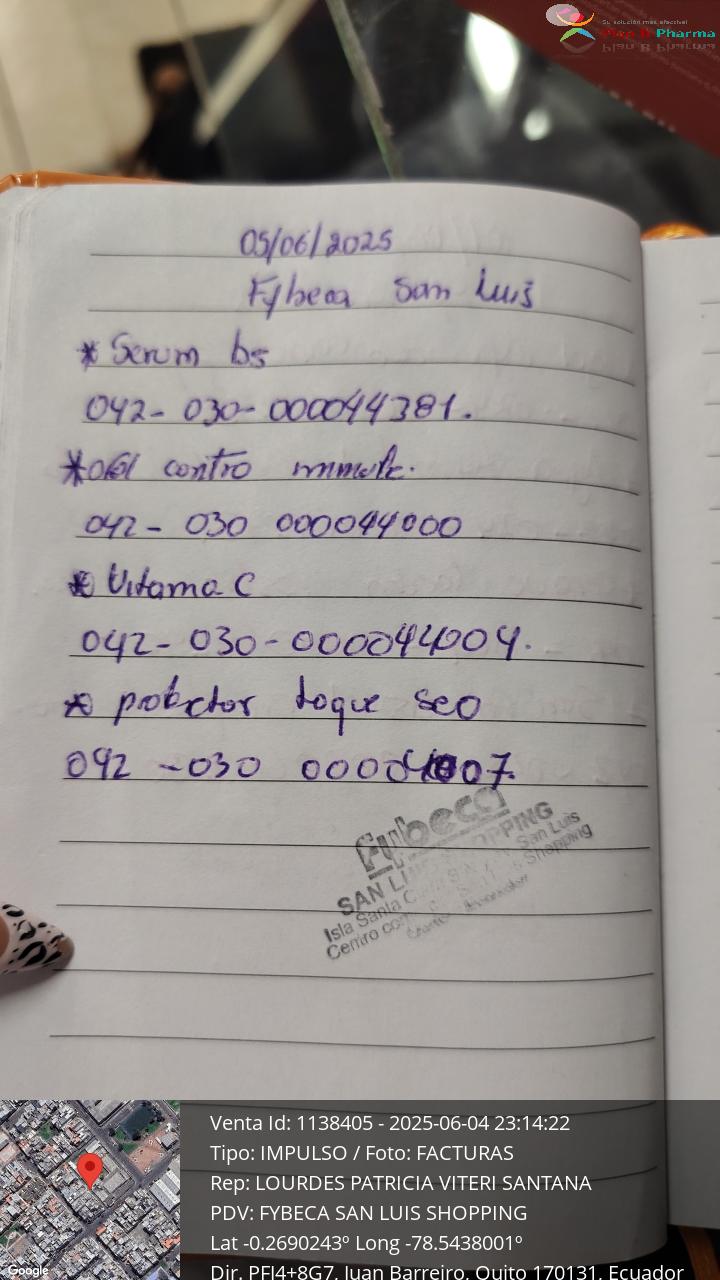 Su solución más efectiva!
Plan B Pharma
05/06/2025
Fybeca San Luis
* Serum b5
042- 030- 000044381.
* contro
042 - 030 000044000
* Vitama C
042- 030- 000044004.
* protector toque seo
042 -030
fybeca
SAN LUIS SHOPPING
Isla Santa San Luis
Centro Shopping
Venta Id: 1138405 - 2025-06-04 23:14:22
Tipo: IMPULSO / Foto: FACTURAS
Rep: LOURDES PATRICIA VITERI SANTANA
PDV: FYBECA SAN LUIS SHOPPING
Lat -0.2690243º Long -78.5438001º
Dir. PFJ4+8G7, Juan Barreiro, Quito 170131, Ecuador
Google